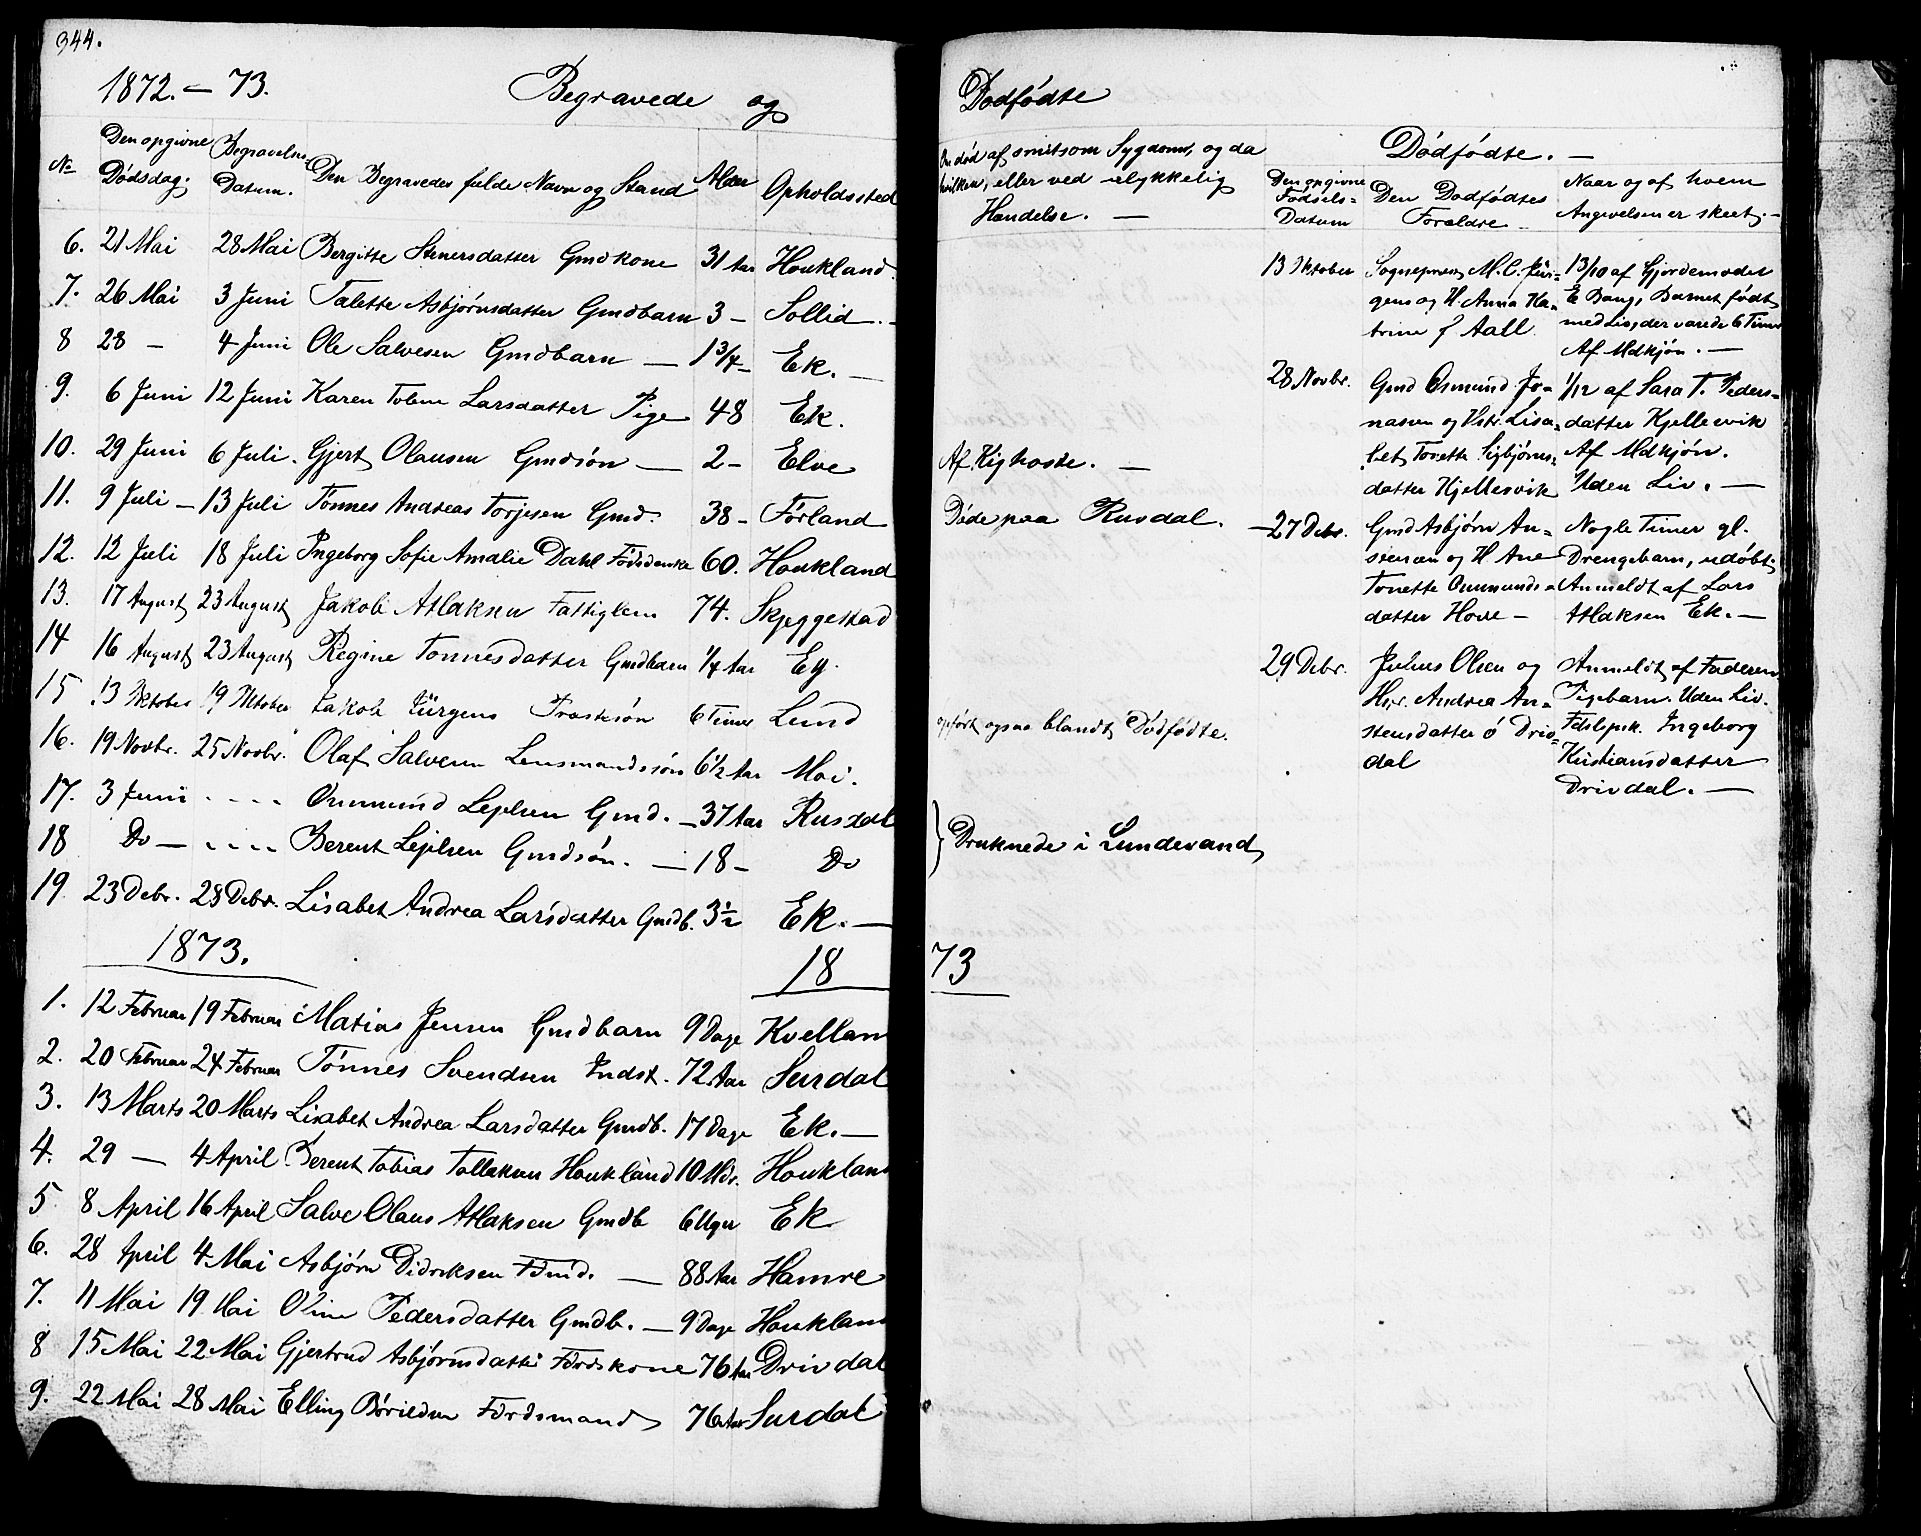 344.
1872. – 73. Begravede og
No Den opgivne Dødsdag. Begravelses Datum. Den Begravedes fulde Navn og Stand Alder Opholdssted
6. 21 Mai 28 Mai Bergitte Stenersdatter Gmdkone 31 Aar Houkland
7. 26 Mai 3 Juni Talette Asbjørnsdatter Gmdbarn 3 – Sollid. –
8 28 – 4 Juni Ole Salvesen Gmdbarn — 1 3/4 – Ek. —
9. 6 Juni 12 Juni Karen Toline Larsdatter Pige 48 Ek.
10. 29 Juni 6 Juli. Gjert Olausen Gmdsøn — 2 – Elve
11. 9 Juli – 13 Juli Tønnes Andreas Torjesen Gmd. 38 – Førland
12. 12 Juli 18 Juli Ingeborg Sofie Amalie Dahl 60. Houkland
13. 17 August 23 August Jakob Atlaksen Fattiglem 74. Skjeggestad
14 16 August 23 August Regine Tonnesdatter Gmdbarn 1/4 Aar Eg.
15 13 Oktober 19 Oktober Jakob Jürgens Præstesøn 6 Timer Lund
16. 19 Novbr. 25 Novbr. Olaf Salvesen Lensmandssøn 6 1/2 Aar Moi.
17. 3 Juni - - - - Ommund Lejelsen Gmd. – 37 Aar Rusdal
18 Do — - - - - Berent Lejelsen Gmdsøn. — 18 – Do
19 23 Debr. 28 Debr. Lisabet Andrea Larsdatter Gmdb. 3 1/2 Ek. —
1873. 18
1. 12 Februar 19 Februar Matias Jensen Gmdbarn 9 Dage Kvellan
2. 20 Februar 24 Februar Tønnes Svendsen Indst. 72 Aar Surdal
3. 13 Marts 20 Marts Lisabet Andrea Larsdatter Gmdb. 17 Dage Ek. —
4. 29 — 4 April Berent Tobias Tollaksen Houkland 10 Mdr. Houklan
5 8 April 16 April Salve Olaus Atlaksen Gmdb 6 Uger Ek
6. 28 April 4 Mai Asbjørn Didriksen — 88 Aar Hamre
7. 11 Mai 19 Mai Oline Pedersdatter Gmdb. — 9 Dage Houklan
8 15 Mai 22 Mai Gjertrud Asbjørnsdatter Fdrdskone 76 Aar Drivdal
9. 22 Mai 28 Mai Elling Børildsen Fdrdsmand 76 Aar Surdal
Dødfødte
Om død af smitsom Sygdom, og da
hvilken, eller ved ulykkelig
Hændelse. —
Af Kighoste. —
Døde paa Rusdal.
opført ogsaa blandt Dødfødte.
Druknede i Lundevand
73
Dødfødte. —
Den opgivne
Fødsels=
Datum
Den Dødfødtes
Forældre –
Naar og af hvem
Angivelsen er skeet. –
13 Oktober
Sognepræst M. C. Jür=
gens og H. Anna Ka=
trine f. Aall
13/10 af Gjordemoder
E. Bang, Barnet født
med Liv, der varede 6 Timer
Af Mdkjøn. —
28 Novbr.
Gmd Osmund Jo=
nasen og Hstr. Lisa=
bet Tonette Sigbjørns=
datter Kjellesvik
1/12 af Sara T. Peders=
datter Kjellesvik
Af Mdkjøn.
Uden Liv. —
27 Debr.
Gmd Asbjørn An=
stensen og H Ane
Tonette Ommunds=
datter Hove –
Nogle Timer gl.
Drengebarn, udøbt.
Anmeldt af Lars
Atlaksen Ek. —
29 Debr.
Julius Olsen og
Andrea An=
stensdatter Driv=
dal
Anmeldt af Faderen
Pigebarn. Uden Liv.
Ingeborg
Kristiansdatter
Drivdal. —